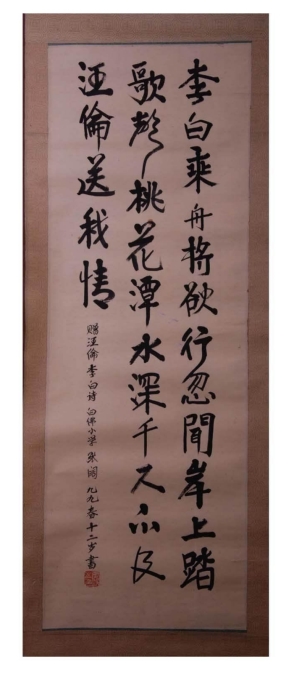 李白乘舟將欲行忽聞岸上踏
歌聲桃花潭水深千尺不及
汪倫送我情
赠汪倫 李白诗 白佛小學 九九春十二岁書